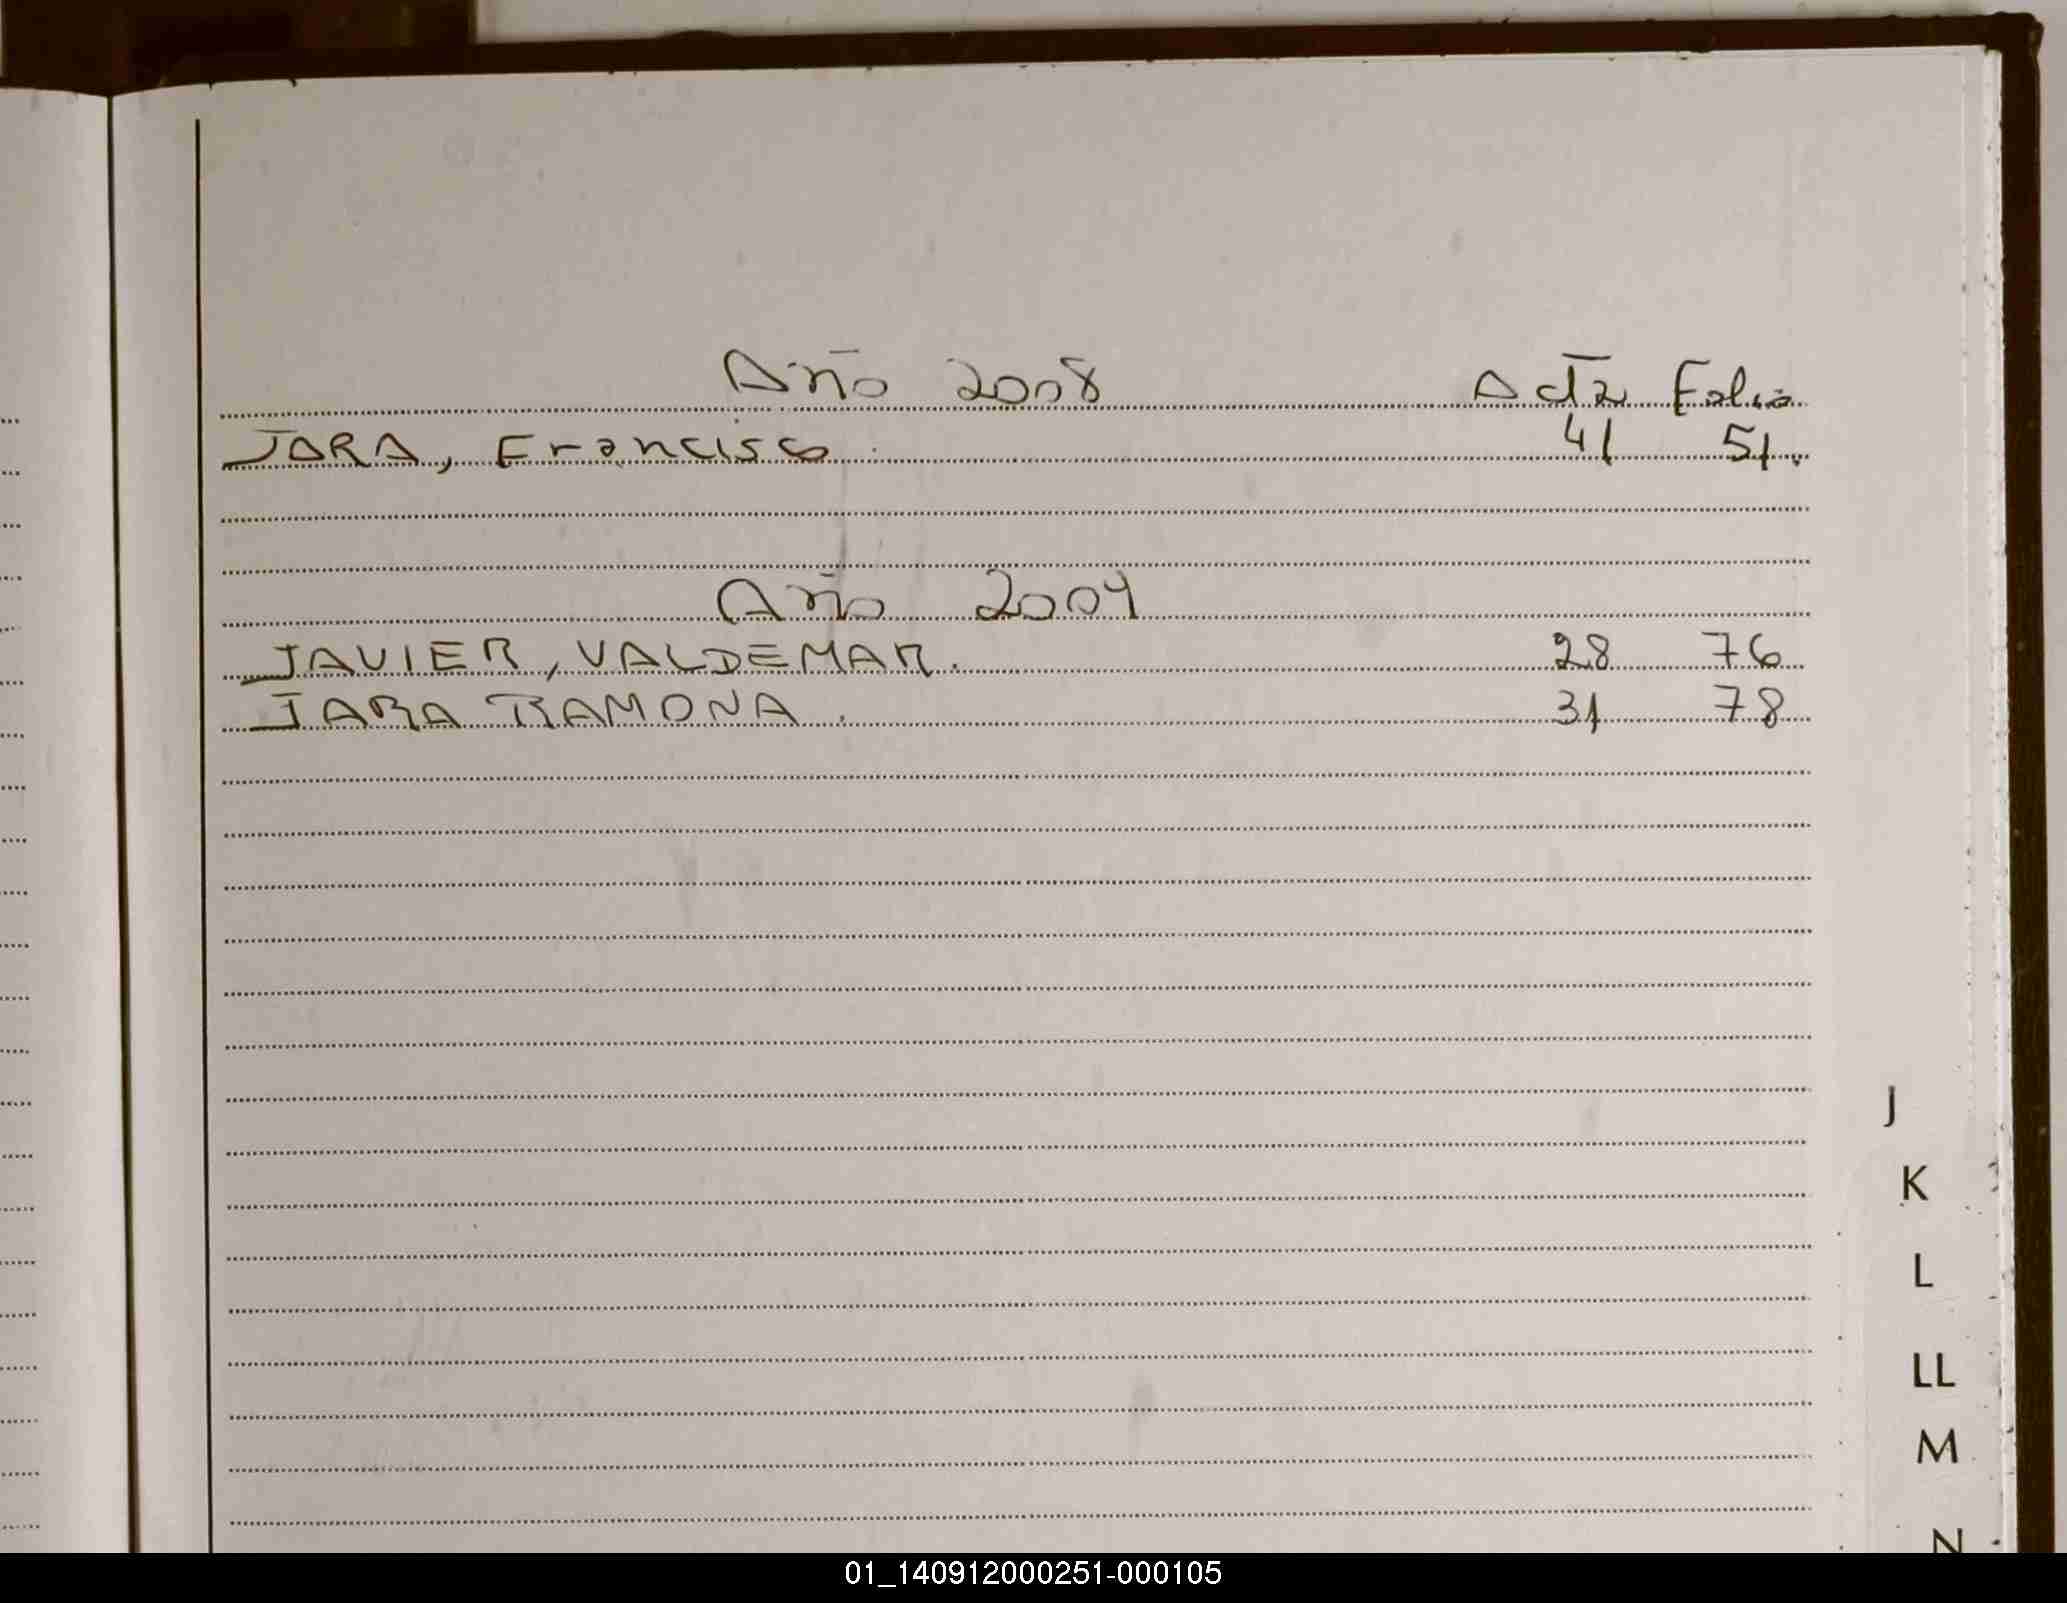 Año 2008 Acta Folio
JARA, Francisco. 41 51.
Año 2009
JAVIER, VALDEMAR. 28 76
JARA RAMONA. 31 78
J
K
L
LL
M
N
01_140912000251-000105